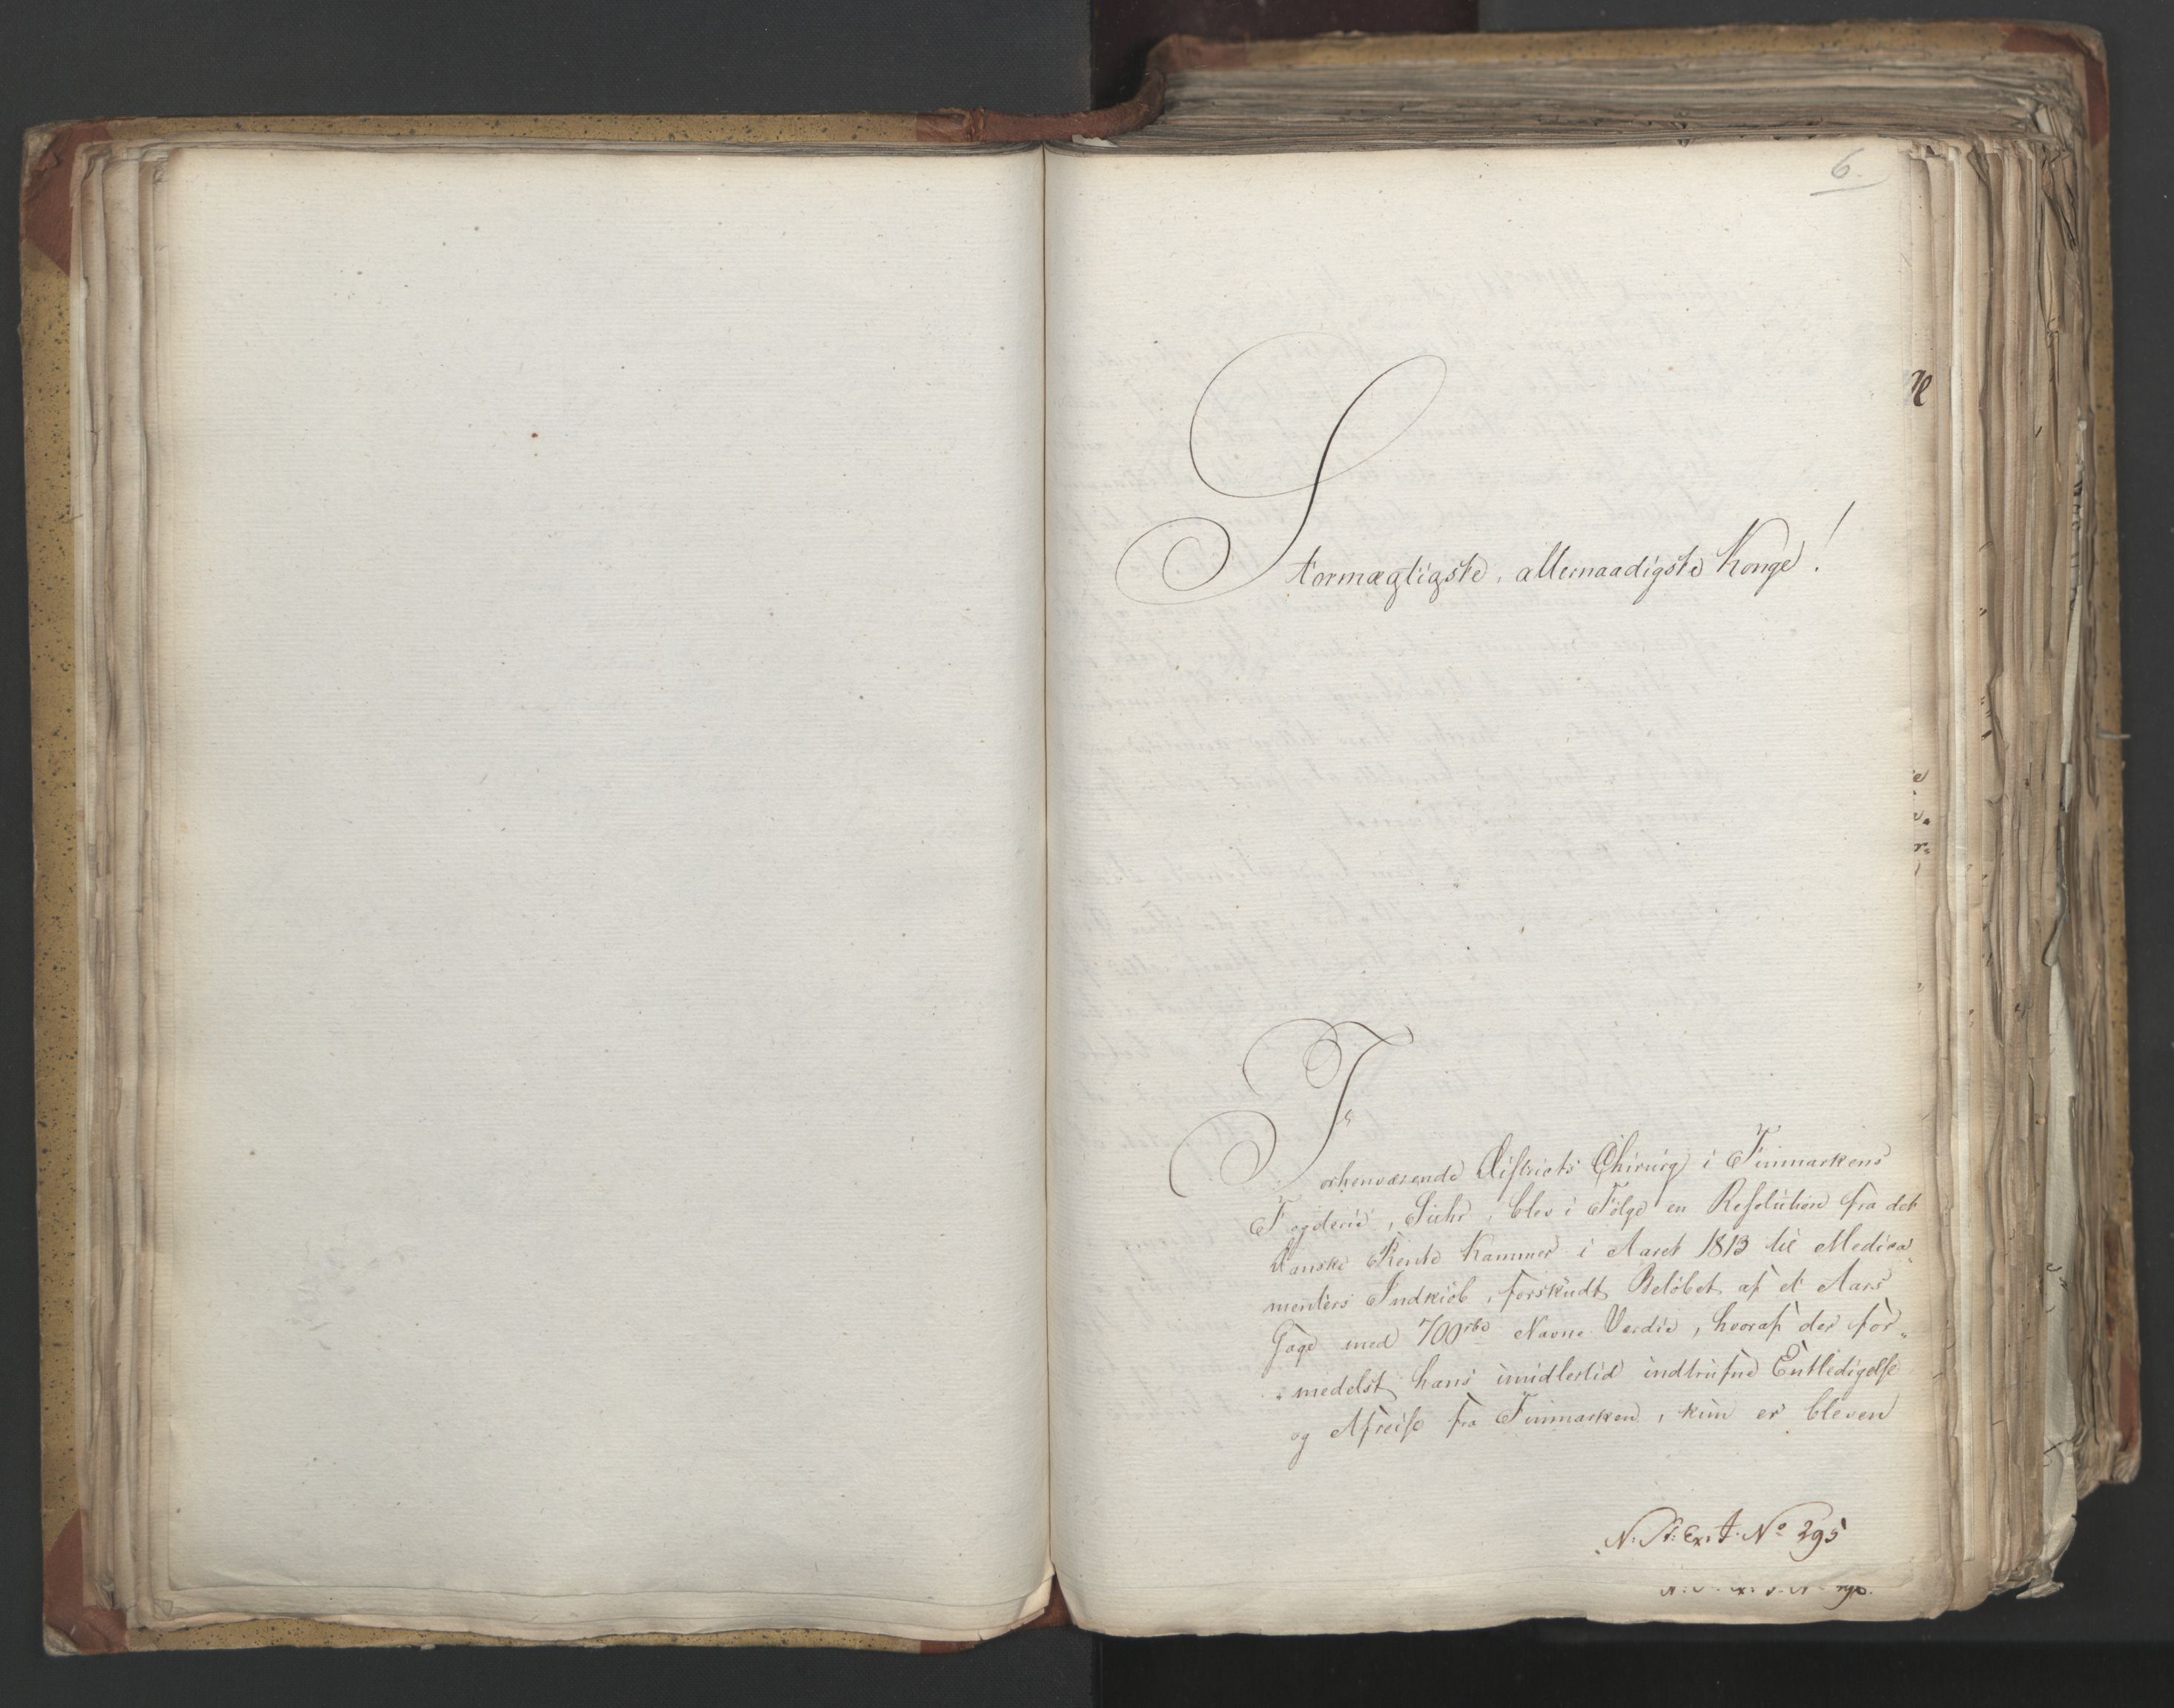 6.
Stormægtigste, allernaadigste Konge!
Forhenværende Districts Chirurg i Finmarkens
Fogderie, Suhr, blev i Følge en Resolution fra det
danske Rente Kammer i Aaret 1813 til Medica¬
menters Indkiøb, forskudt Beløbet af et Aars
Gage med 700 rbd Navne Værdie, hvoraf der for¬
medelst hans imidlertid indtrufne Entledigelse
og Afreise fra Finmarken, kun er bleven
N: St: Ex: J: No 295